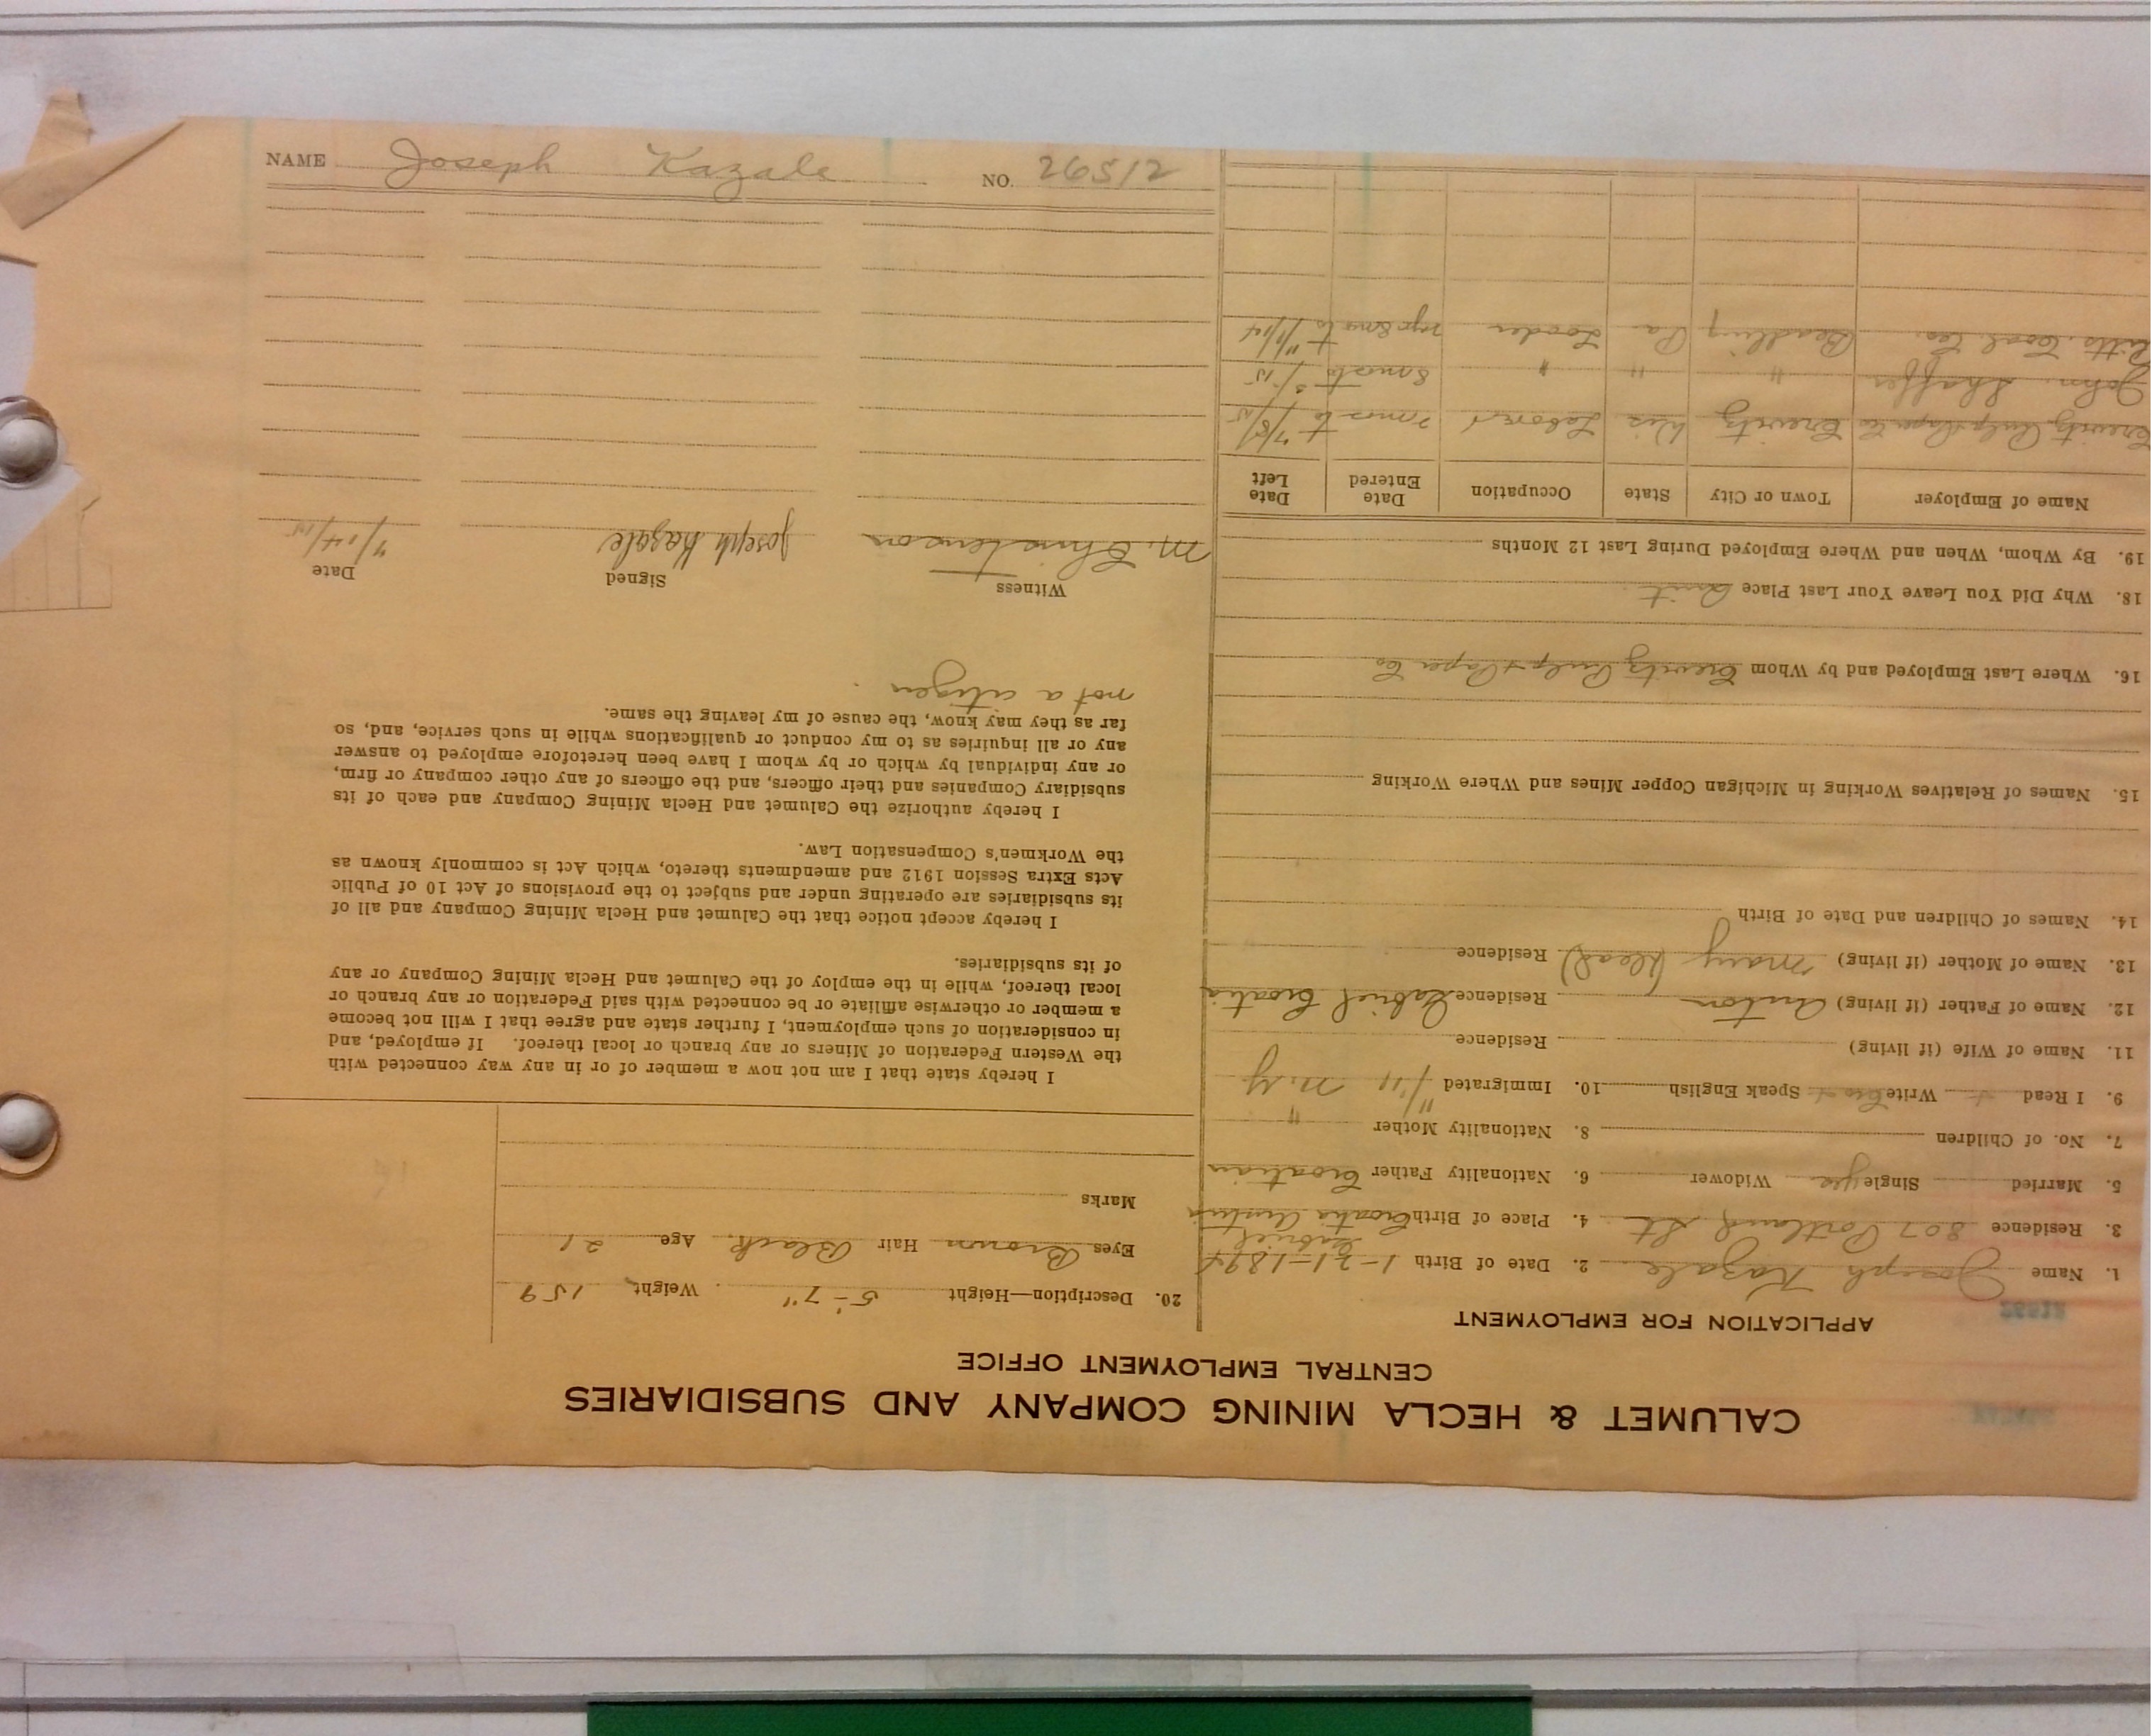 CALUMET & HECLA MINING COMPANY AND SUBSIDIARIES
CENTRAL EMPLOYMENT OFFICE
APPLICATION FOR EMPLOYMENT
1. Name Joseph Kazale 2. Date of Birth 1-21-1894
Gabriel
3. Residence 807 Portland St 4. Place of Birth Croatia Austria
5. Married Single yes Widower 6. Nationality Father Croatian
7. No. of Children 8. Nationality Mother "
9. I Read Write Speak English 10. Immigrated /11 N.Y
11. Name of Wife (if living) Residence
12. Name of Father (if living) Anton Residence Gabriel Croatia
13. Name of Mother (if living) Mary (Dead) Residence
14. Names of Children and Date of Birth
15. Names of Relatives Working in Michigan Copper Mines and Where Working
16. Where Last Employed and by Whom Crevitz Pulp & Paper Co
18. Why Did You Leave Your Last Place Quit
19. By Whom, When and Where Employed During Last 12 Months
Name of Employer Town or City State Occupation Date Entered Date Left
Crevitz Pulp & Paper Co Crevitz Wis Laborer 2 mos to 7/8/15
John Shaffer " " " 8 mos to 5/15
Pitts. Coal Co. Beadling Pa Loader 2 yr 8 mo to 11/1/14
20. Description—Height 5'-7" Weight 159
Eyes Brown Hair Black Age 21
Marks
I hereby state that I am not now a member of or in any way connected with
the Western Federation of Miners or any branch or local thereof. If employed, and
in consideration of such employment, I further state and agree that I will not become
a member or otherwise affiliate or be connected with said Federation or any branch or
local thereof, while in the employ of the Calumet and Hecla Mining Company or any
of its subsidiaries.
I hereby accept notice that the Calumet and Hecla Mining Company and all of
its subsidiaries are operating under and subject to the provisions of Act 10 of Public
Acts Extra Session 1912 and amendments thereto, which Act is commonly known as
the Workmen's Compensation Law.
I hereby authorize the Calumet and Hecla Mining Company and each of its
subsidiary Companies and their officers, and the officers of any other company or firm,
or any individual by which or by whom I have been heretofore employed to answer
any or all inquiries as to my conduct or qualifications while in such service, and, so
far as they may know, the cause of my leaving the same.
not a citizen.
Witness Signed Date
M. Christenson Joseph Kazale 7/14/15
NAME Joseph Kazale NO. 26512